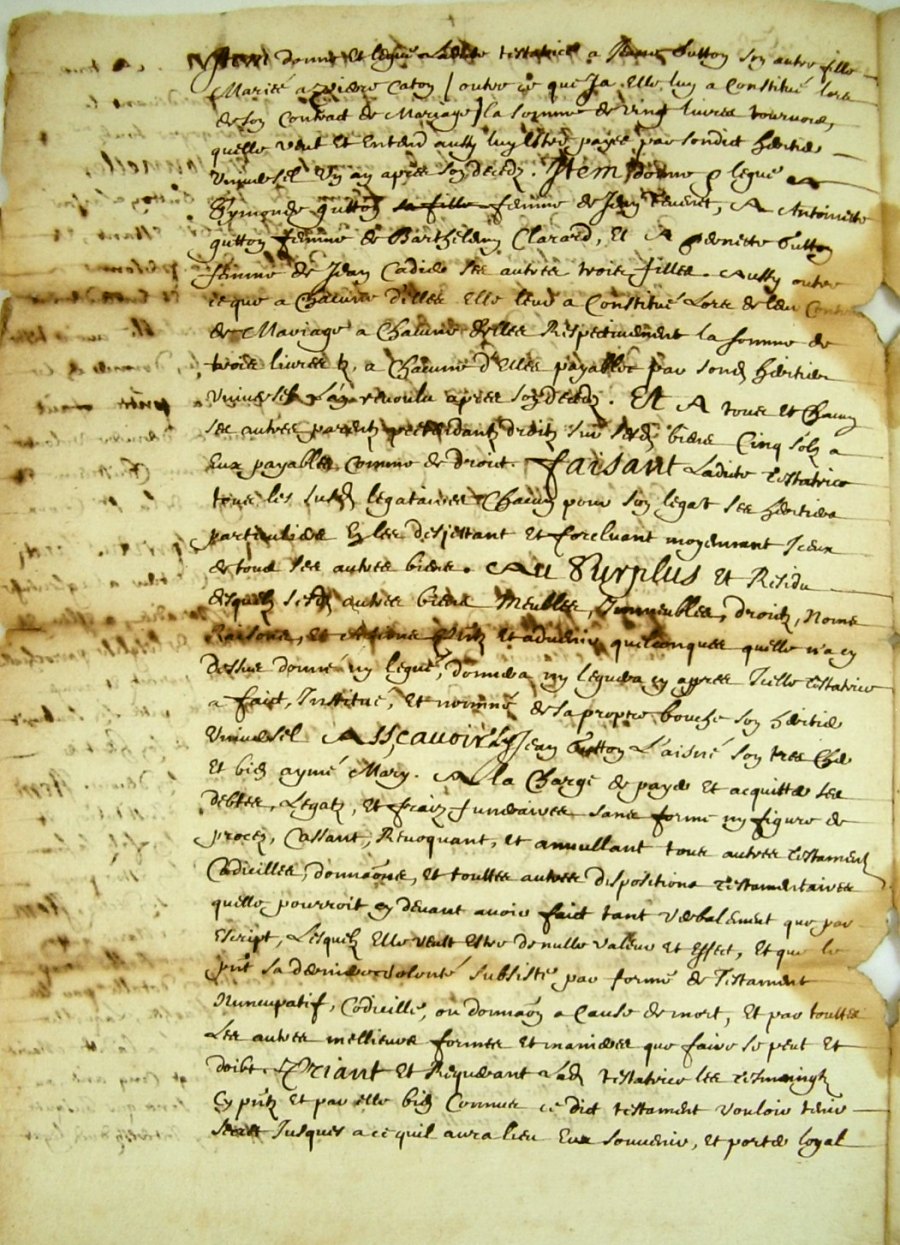 Item donne et legue ladite testatrice a Jeanne Gutton son autre fille
Mariée a Pierre Caton / outre ce que Ja elle luy a Constitué lors
de son Contract de Mariage / la somme de vingt livres tournois,
quelle veut et entend aussy luy estre payée par sondict heritier
universel un an apres son deced. Item donne & legue A
Symonde gutton femme de Jean, A Antoinette
gutton femme de Barthelemy Clarard, Et A Pernette Gutton
femme de Jean Cadier ses autres trois filles. Aussy outre
ce que a Chacune d'elles Elle leur a Constitué Lors de leur Cont
de Mariage a Chacune d'elles Respectivement la somme de
trois livres tz, a Chacune d'Elles payables par sond heritier
universel L'an revoulu apres son deced. Et A tous et Chacun
ses autres parentz prettendantz droitz sur sesd biens Cinq solz a
Eux payables Comme de droict. faisant Ladite testatrice
tous les susd legataires Chacun pour son legat ses heritiers
particuliers En les desjettant et forcluant moyennant Iceux
de tous ses autres biens. Au Surplus et Residu
desquelz sesd autres biens Meubles, Immeubles, droitz, Noms
Raisons, et actions pntz et advenir quelconques quelle n'a cy
dessus donné ny legué, donnera ny leguera cy apres Icelle testatrice
a faict, Institué, et nommé de sa propre bouche son heritier
universel Assçavoir Ly Jean Gutton L'aisné son tres Cher
et bien aymé Mary. A la Charge de payer et acquitter ses
debtes, Legatz, et fraiz funeraires sans forme ny figure de
procez, Cassant, Revoquant, et annullant tous autres testamentz
Codicilles, donnaons, et touttes autres dispositions testamentaires
quelle pourroit cy devant avoir faict tant verbalement que par
Escript, Lesquelz Elle veult estre de nulle valeur et effect, et que le
pnt sa derniere volonté subsiste par forme de Testament
Nuncupatif, Codicille, ou donnaon a Cause de mort, et par touttes
Les autres mellieures formes et manieres que faire se peut et
doibt. Priant et Requerant Lad testatrice les tesmoingtz
Cy pntz et par elle bien Connus ce dict testament vouloir tenir
secret Jusques a ce quil aura lieu Eux souvenir, et porter loyal